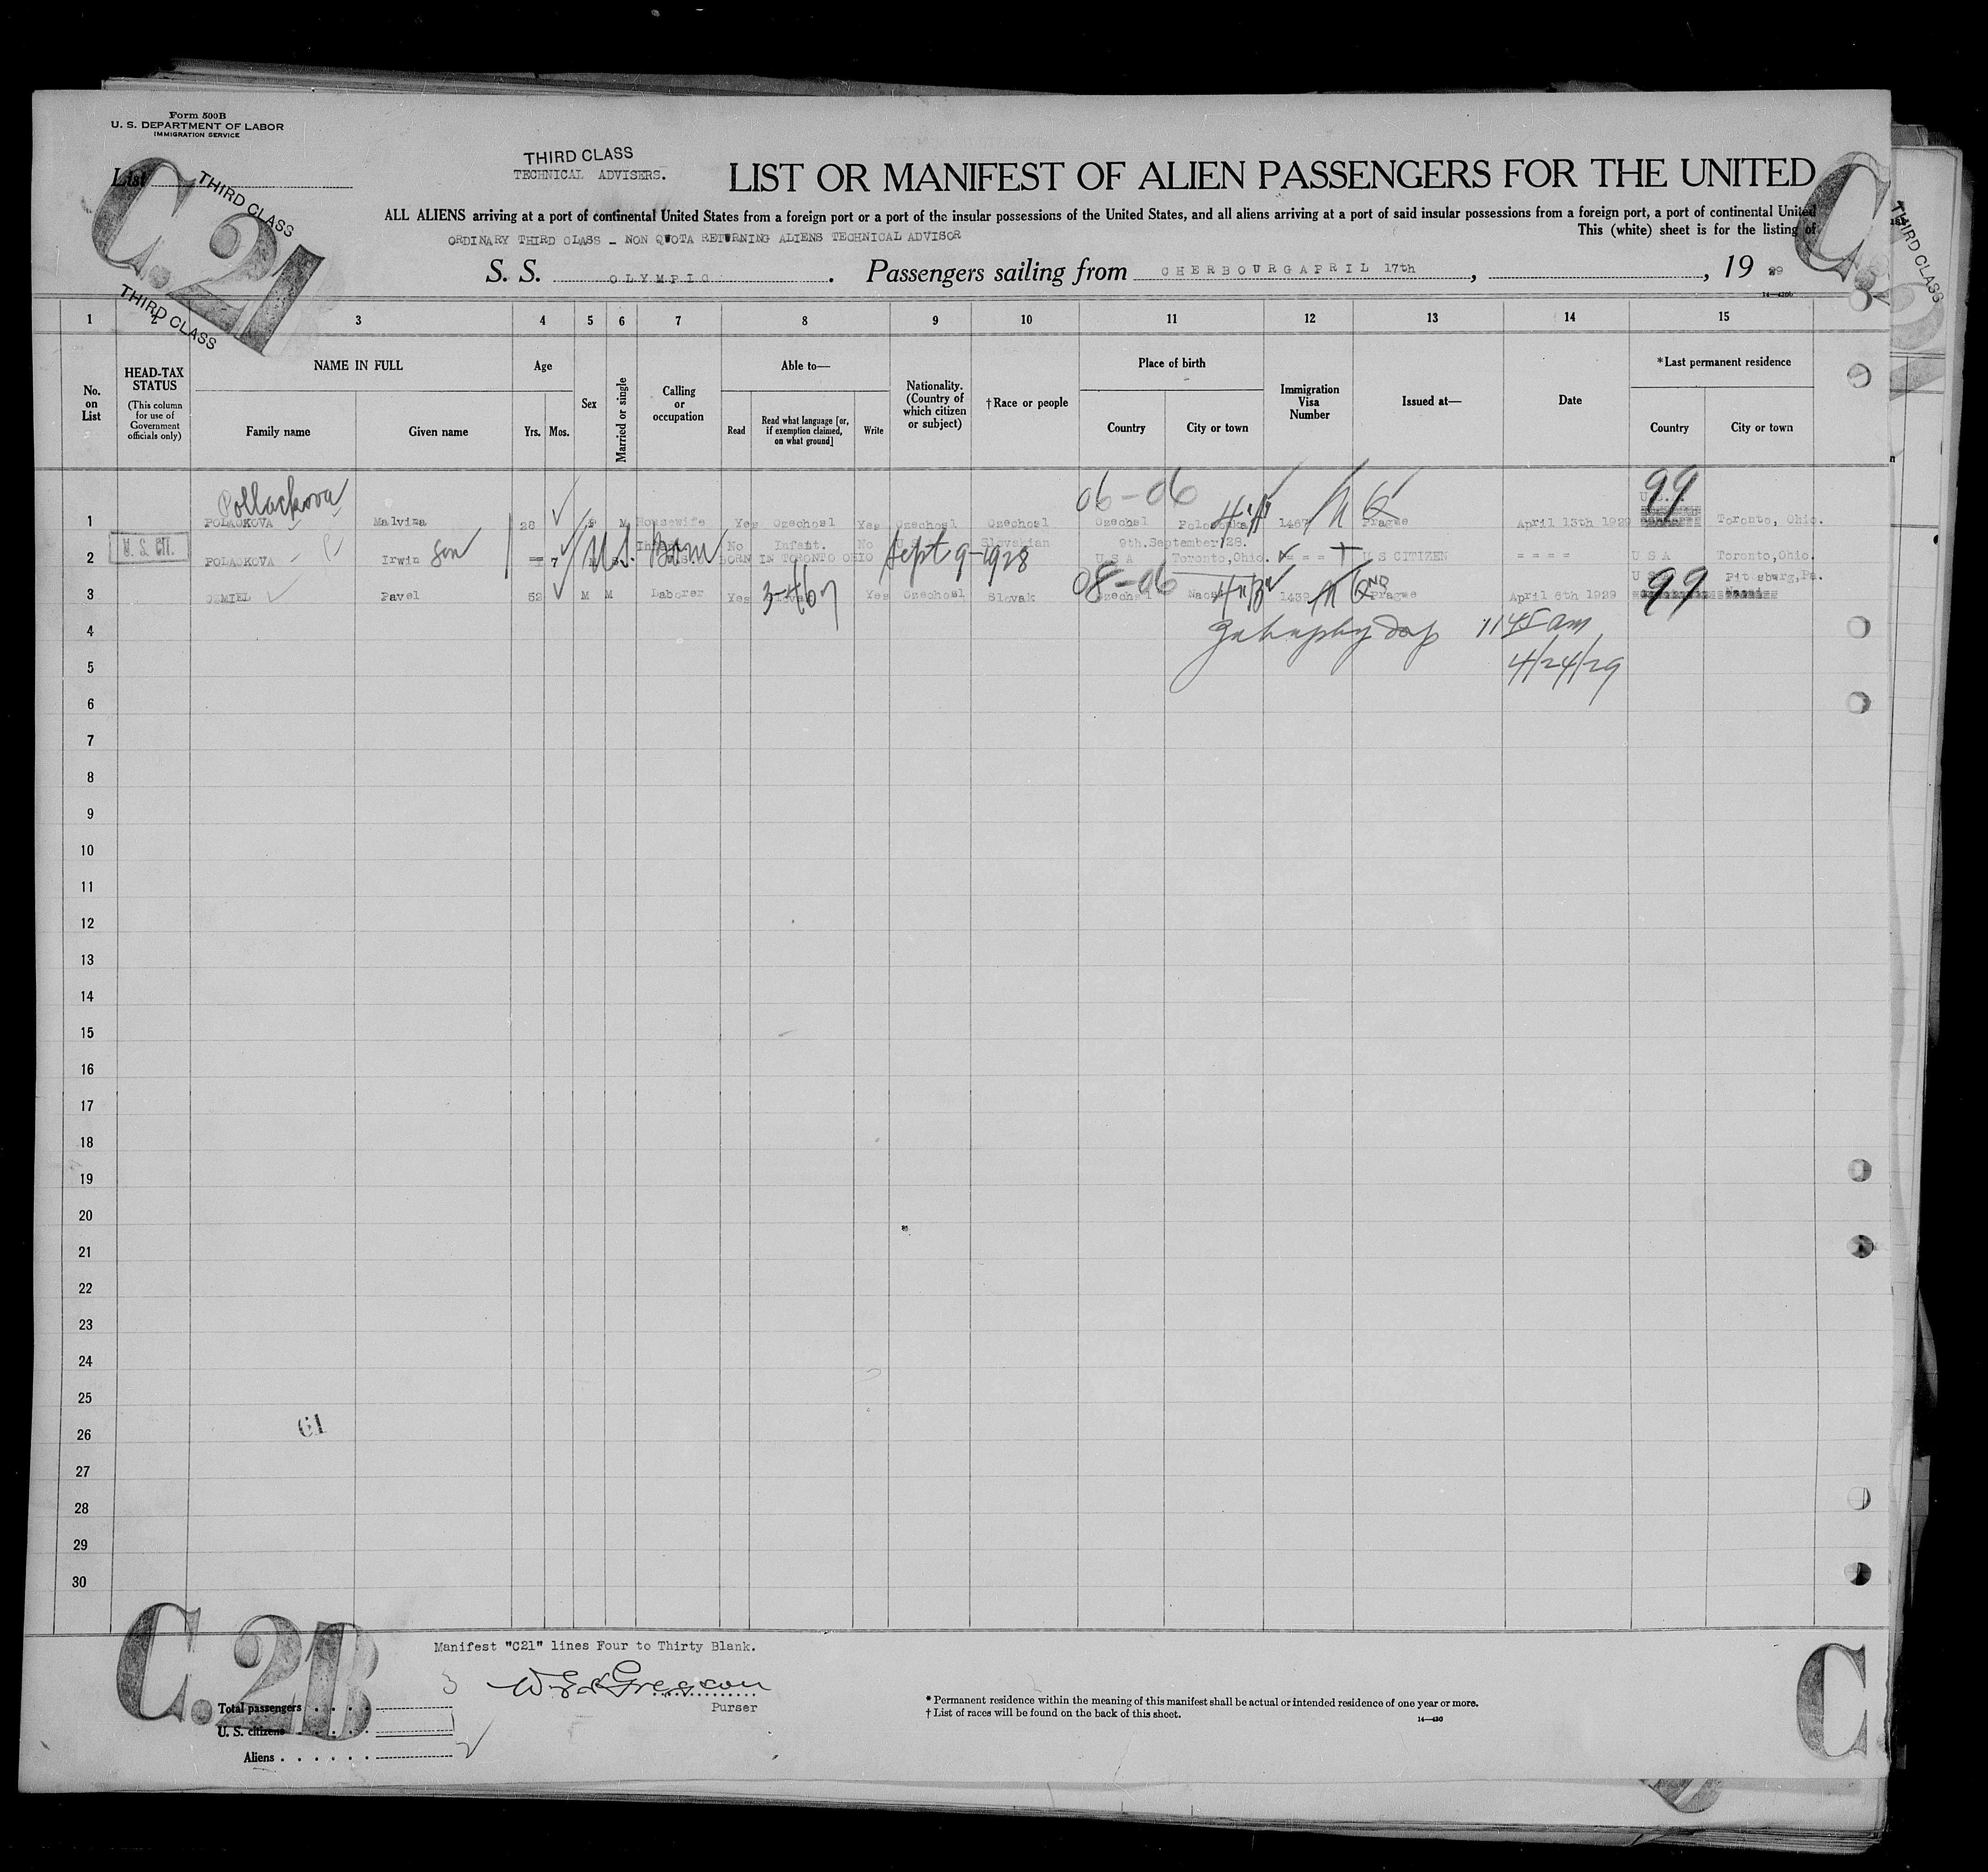 Form 500B
U. S. DEPARTMENT OF LABOR
IMMIGRATION SERVICE
List
C.21
THIRD CLASS
THIRD CLASS
THIRD CLASS
TECHNICAL ADVISERS.
LIST OR MANIFEST OF ALIEN PASSENGERS FOR THE UNITED
ALL ALIENS arriving at a port of continental United States from a foreign port or a port of the insular possessions of the United States, and all aliens arriving at a port of said insular possessions from a foreign port, a port of continental United
This (white) sheet is for the listing of
ORDINARY THIRD CLASS - NON QUOTA RETURNING ALIENS TECHNICAL ADVISOR
S. S. OLYMPIC. Passengers sailing from CHERBOURG APRIL 17th, , 19 29
14-430b
THIRD CLASS
1 2 3 4 5 6 7 8 9 10 11 12 13 14 15
No. on List
HEAD-TAX STATUS
(This column for use of Government officials only)
NAME IN FULL
Family name Given name
Age
Yrs. Mos.
Sex
Married or single
Calling or occupation
Able to—
Read
Read what language [or, if exemption claimed, on what ground]
Write
Nationality. (Country of which citizen or subject)
† Race or people
Place of birth
Country City or town
Immigration Visa Number
Issued at—
Date
* Last permanent residence
Country City or town
Pollackova 06-06 99
1 POLACKOVA Malvina 28 F M Housewife Yes Czechosl Yes Czechosl Czechosl Czechsl 1467 Prague April 13th 1929 Toronto, Ohio.
Infant No Infant. No Slovakian 9th.September/28.
U. S. CIT.
2 POLACKOVA Irwin son 7 U.S. Born BORN IN TORONTO OHIO Sept 9-1928 U S A Toronto,Ohio. = = = U S CITIZEN = = = = U S A Toronto,Ohio.
08-06 99 Pittsburg,Pa.
3 Pavel 52 M M Laborer Yes 3-467 Yes Czechosl Slovak Czechsl Prague April 6th 1929
4 11 45 am
5 4/24/29
6
7
8
9
10
11
12
13
14
15
16
17
18
19
20
21
22
23
24
25
26
61
27
28
29
30
Manifest "C21" lines Four to Thirty Blank.
Purser
Total passengers 3
U. S. citizens 1
Aliens 2
* Permanent residence within the meaning of this manifest shall be actual or intended residence of one year or more.
† List of races will be found on the back of this sheet.
14-430
C